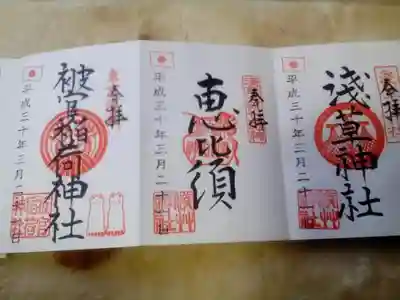 奉拝
浅草神社
平成三十年三月二十
奉拝
恵比須
平成三十年三月二十七日
奉拝
被官稲荷神社
平成三十年三月二十七日